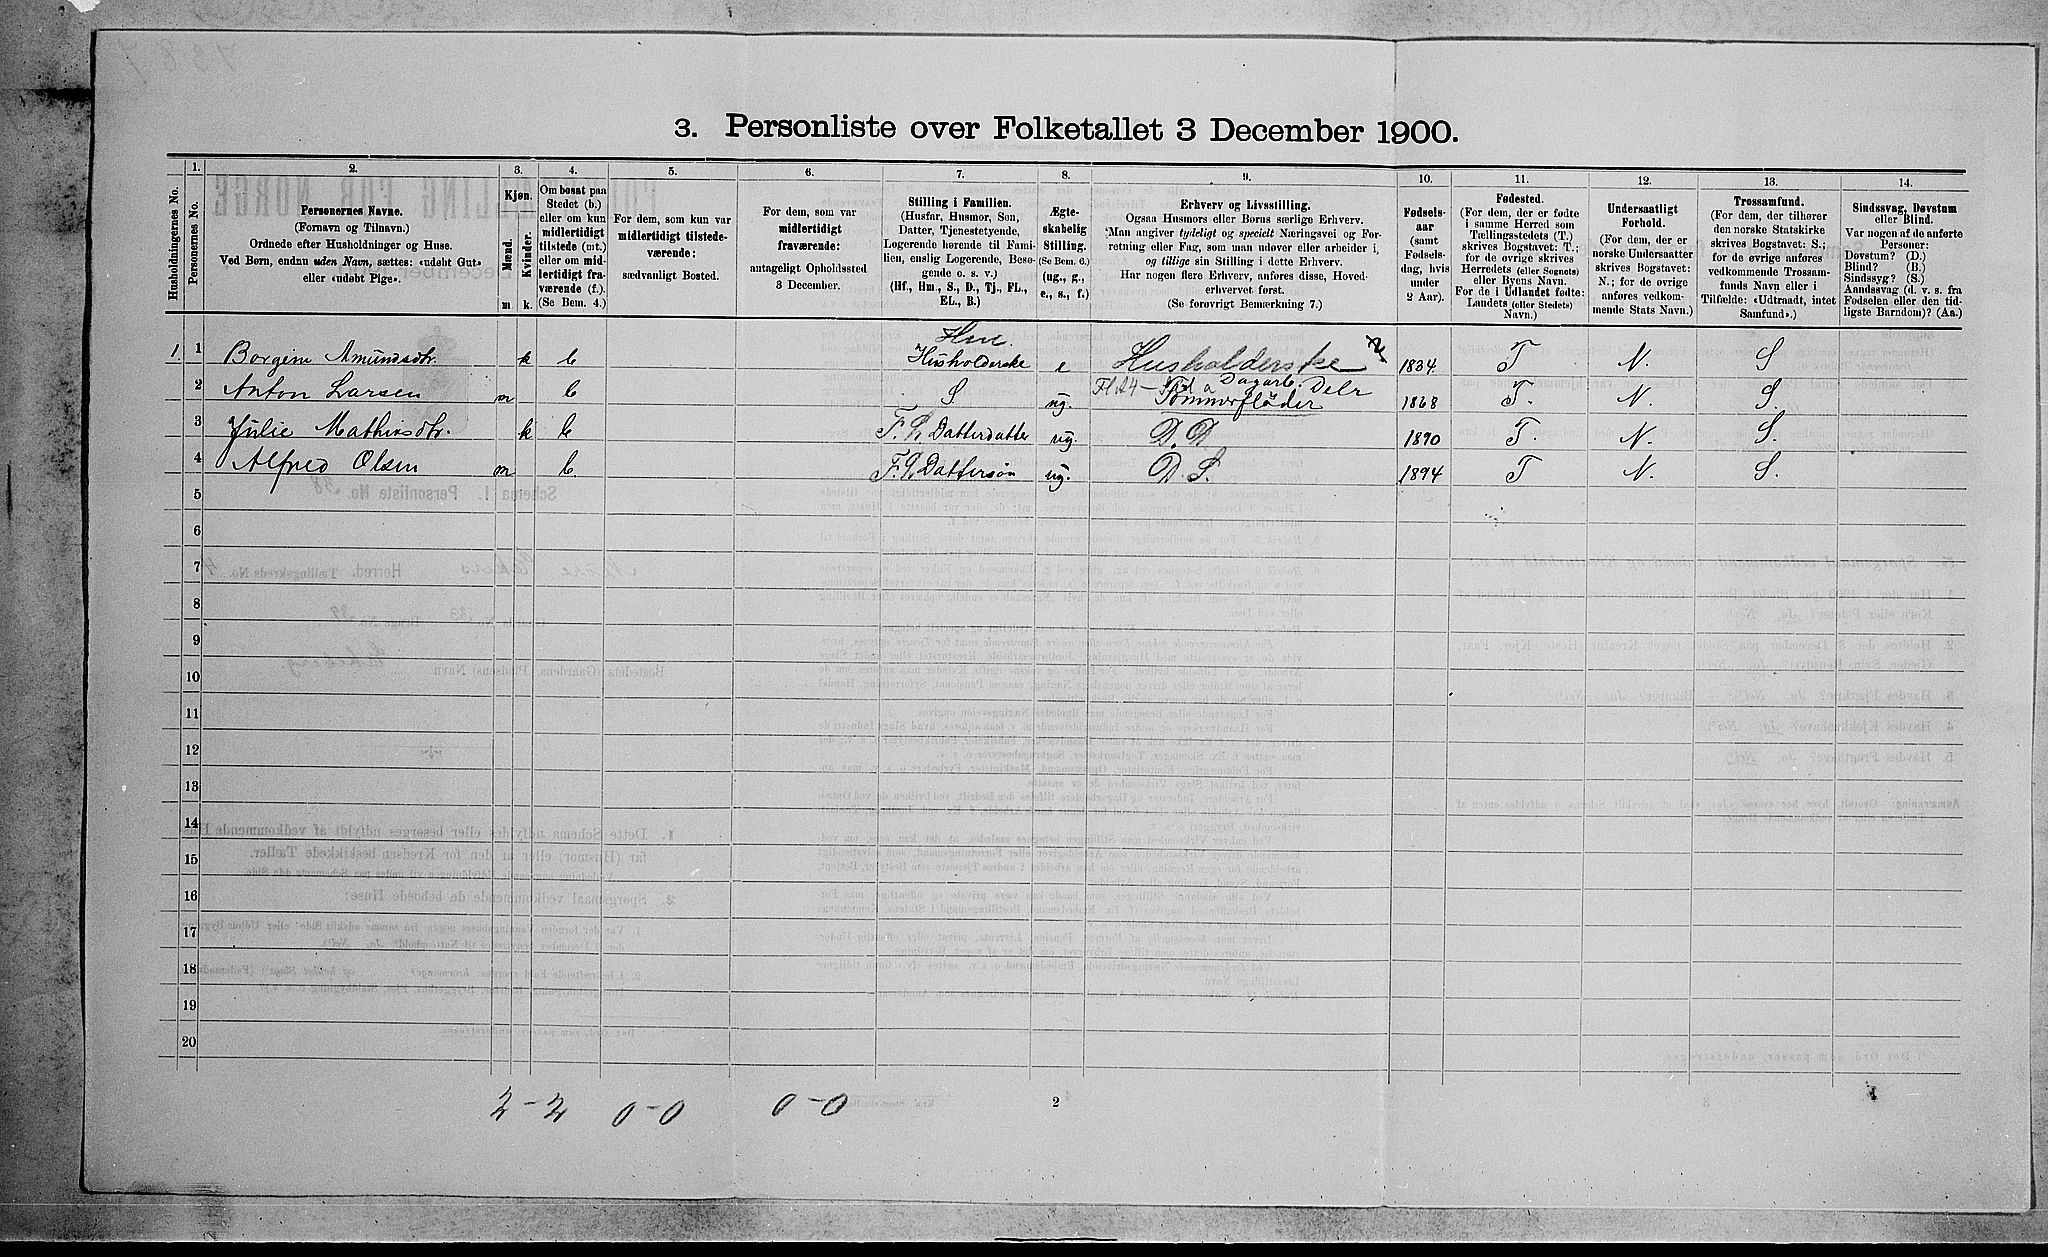 3. Personliste over Folketallet 3 December 1900.
Husholdningernes No.
1.
Personernes No.
2.
Personernes Navne.
(Fornavn og Tilnavn.)
Ordnede efter Husholdninger og Huse.
Ved Børn, endnu uden Navn, sættes: «udøbt Gut»
eller «udøbt Pige».
3.
Kjøn.
Mænd.
Kvinder.
m. k.
4.
Om bosat paa
Stedet (b.)
eller om kun
midlertidigt
tilstede (mt.)
eller om mid-
lertidigt fra-
værende (f.).
(Se Bem. 4.)
5.
For dem, som kun var
midlertidigt tilstede-
værende:
sædvanligt Bosted.
6.
For dem, som var
midlertidigt
fraværende:
antageligt Opholdssted
3 December.
7.
Stilling i Familien.
(Husfar, Husmor, Søn,
Datter, Tjenestetyende,
Logerende hørende til Fami-
lien, enslig Logerende, Besø-
gende o. s. v.)
(Hf., Hm., S., D., Tj., FL.,
EL., B.)
8.
Ægte-
skabelig
Stilling.
(Se Bem. 6.)
(ug., g.,
e., s., f.)
9.
Erhverv og Livsstilling.
Ogsaa Husmors eller Børns særlige Erhverv.
Man angiver tydeligt og specielt Næringsvei og For-
retning eller Fag, som man udøver eller arbeider i,
og tillige sin Stilling i dette Erhverv.
Har nogen flere Erhverv, anføres disse, Hoved-
erhvervet først.
(Se forøvrigt Bemærkning 7.)
10.
Fødsels-
aar
(samt
Fødsels-
dag, hvis
under
2 Aar).
11.
Fødested.
(For dem, der er fødte
i samme Herred som
Tællingsstedets (T.)
skrives Bogstavet: T.;
for de øvrige skrives
Herredets (eller Sognets)
eller Byens Navn.
For de i Udlandet fødte:
Landets (eller Stedets)
Navn.)
12.
Undersaatligt
Forhold.
(For dem, der er
norske Undersaatter
skrives Bogstavet:
N.; for de øvrige
anføres vedkom-
mende Stats Navn.)
13.
Trossamfund.
(For dem, der tilhører
den norske Statskirke
skrives Bogstavet: S.;
for de øvrige anføres
vedkommende Trossam-
funds Navn eller i
Tilfælde: «Udtraadt, intet
Samfund».)
14.
Sindssvag, Døvstum
eller Blind.
Var nogen af de anførte
Personer:
Døvstum? (D.)
Blind? (B.)
Sindssyg? (S.)
Aandssvag (d. v. s. fra
Fødselen eller den tid-
ligste Barndom)? (Aa.)
Hm.
1. 1 Borgine Amundsdtr. k b Husholderske e Husholderske 1834. T N. S
2 Anton Larsen m b S ug. Dagarb. Tømmerfløder 1868 T. N. S.
3 Julie Mathisdtr. k b F.L. Datterdatter ug. D. D 1890 T. N. S.
4 Alfred Olsen m b F.L. Dattersøn ug. D. S. 1894 T N. S.
5
6
7
8
9
10
11
12
13
14
15
16
17
18
19
20
2-2 0-0 0-0
2